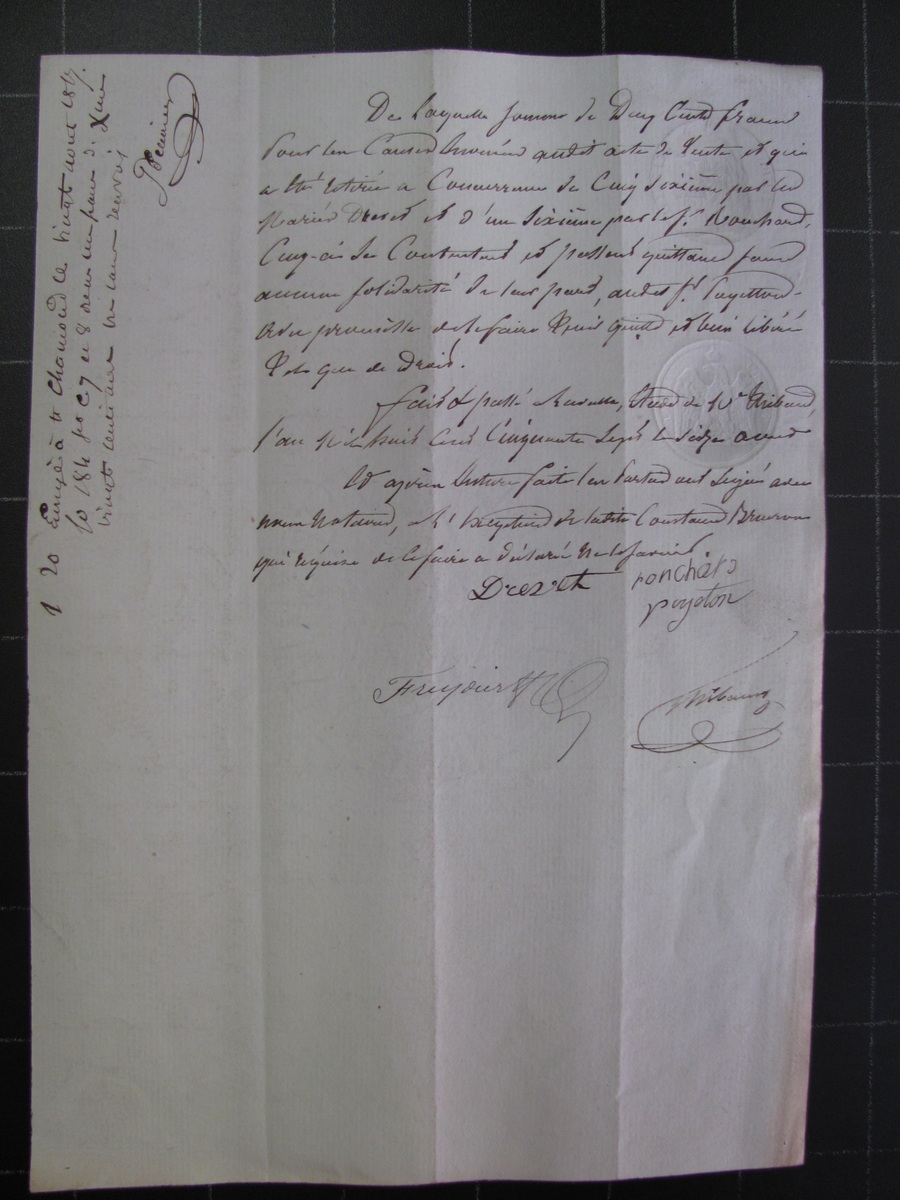 De laquelle somme de Deux Cents francs
Pour les Causes énoncées audit acte de Vente et qui
a été retirée a Concurrence de Cinq Sixième par les
Mariés Drevet et d'un Sixième par le Sr. Ronchard,
Ceux-ci se Contentent et passent quittance sans
aucune solidarité de leur part, audit Sr. Poyeton
avec promesse de le faire tenir quitte et bien libéré
que de Droit.
fait & passé étude de Me Thibaud,
l'an Mil huit cent Cinquante Sept le Seize aout
Et après lecture faite les Parties ont Signé avec
nous Notaires, a l' de ladite
qui requise de le faire a déclaré ne le savoir
Drevet ronchard
poyeton
Thibaud
Enregé à St Chamond le vingt aout 1857.
fo 184 ro C 7 et 8 reçu un franc &
vingt centimes sans renvoi
1 20